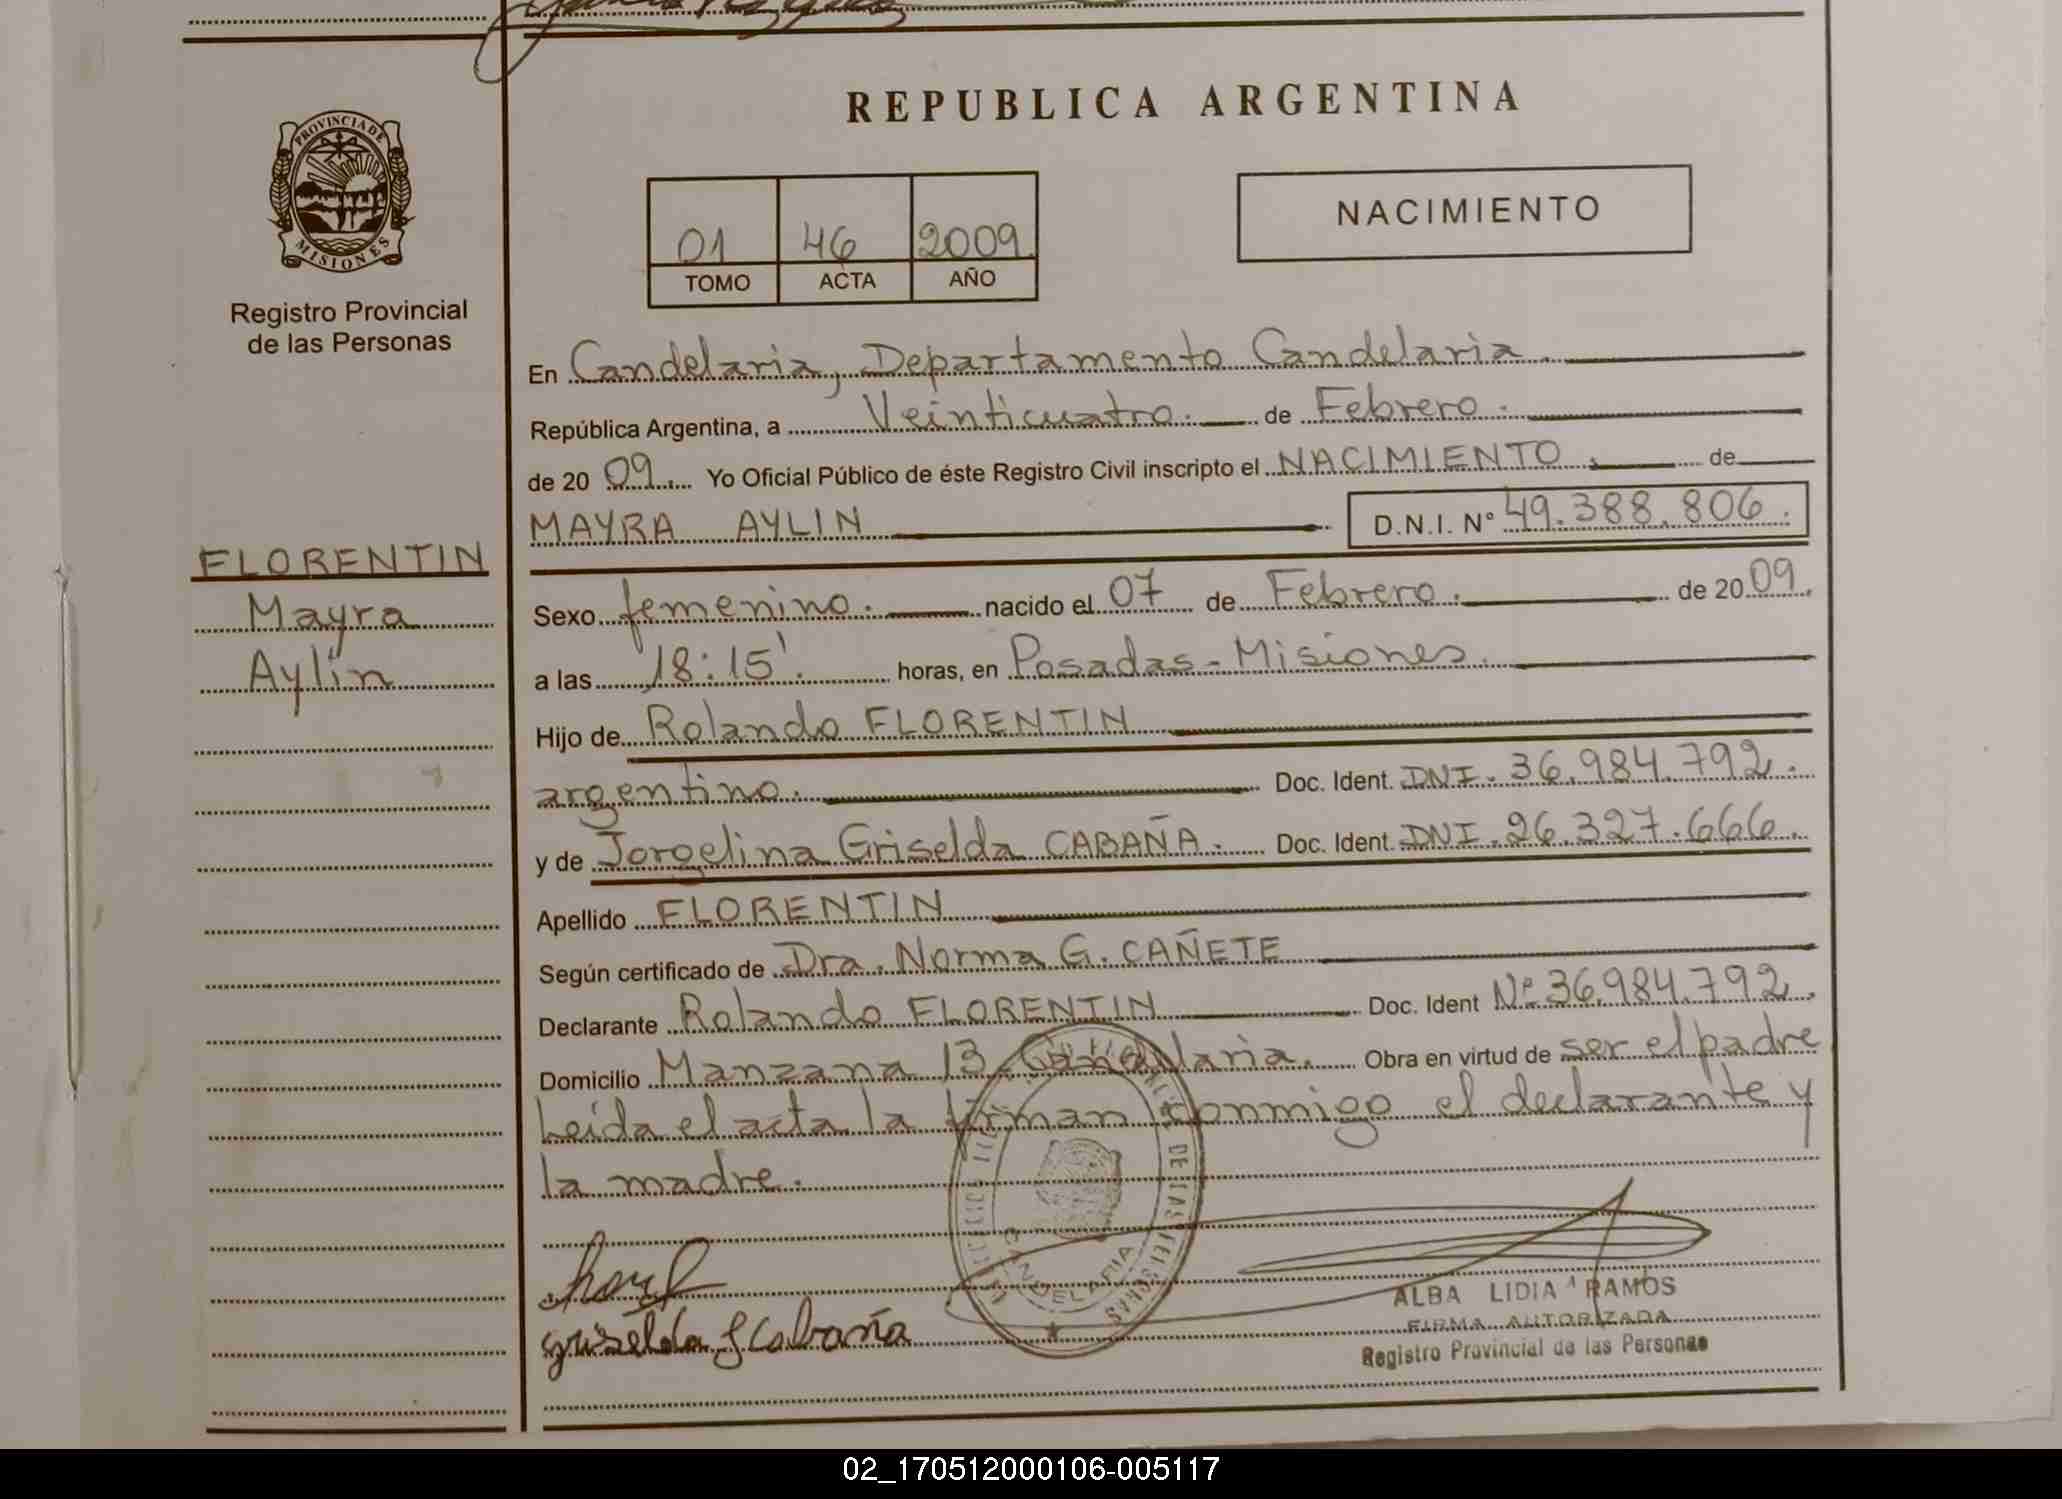 REPUBLICA ARGENTINA
PROVINCIA DE
MISIONES
Registro Provincial
de las Personas
01 46 2009
TOMO ACTA AÑO
NACIMIENTO
En Candelaria, Departamento Candelaria.
República Argentina, a Veinticuatro. de Febrero.
de 20 09. Yo Oficial Público de éste Registro Civil inscripto el NACIMIENTO. de
MAYRA AYLIN D.N.I. Nº 49.388.806.
FLORENTIN
Mayra
Aylin
Sexo femenino. nacido el 07 de Febrero. de 20 09.
a las 18:15'. horas, en Posadas-Misiones.
Hijo de Rolando FLORENTIN
argentino. Doc. Ident. DNI. 36.984.792.
y de Jorgelina Griselda CABAÑA. Doc. Ident. DNI. 26.327.666.
Apellido FLORENTIN
Según certificado de Dra. Norma G. CAÑETE
Declarante Rolando FLORENTIN Doc. Ident Nº 36.984.792.
Domicilio Manzana 13 Candelaria. Obra en virtud de ser el padre
Leída el acta la firman conmigo el declarante y
la madre.
DE LAS PERSONAS
CANDELARIA
Griselda J Cabaña
ALBA LIDIA RAMOS
FIRMA AUTORIZADA
Registro Provincial de las Personas
02_170512000106-005117